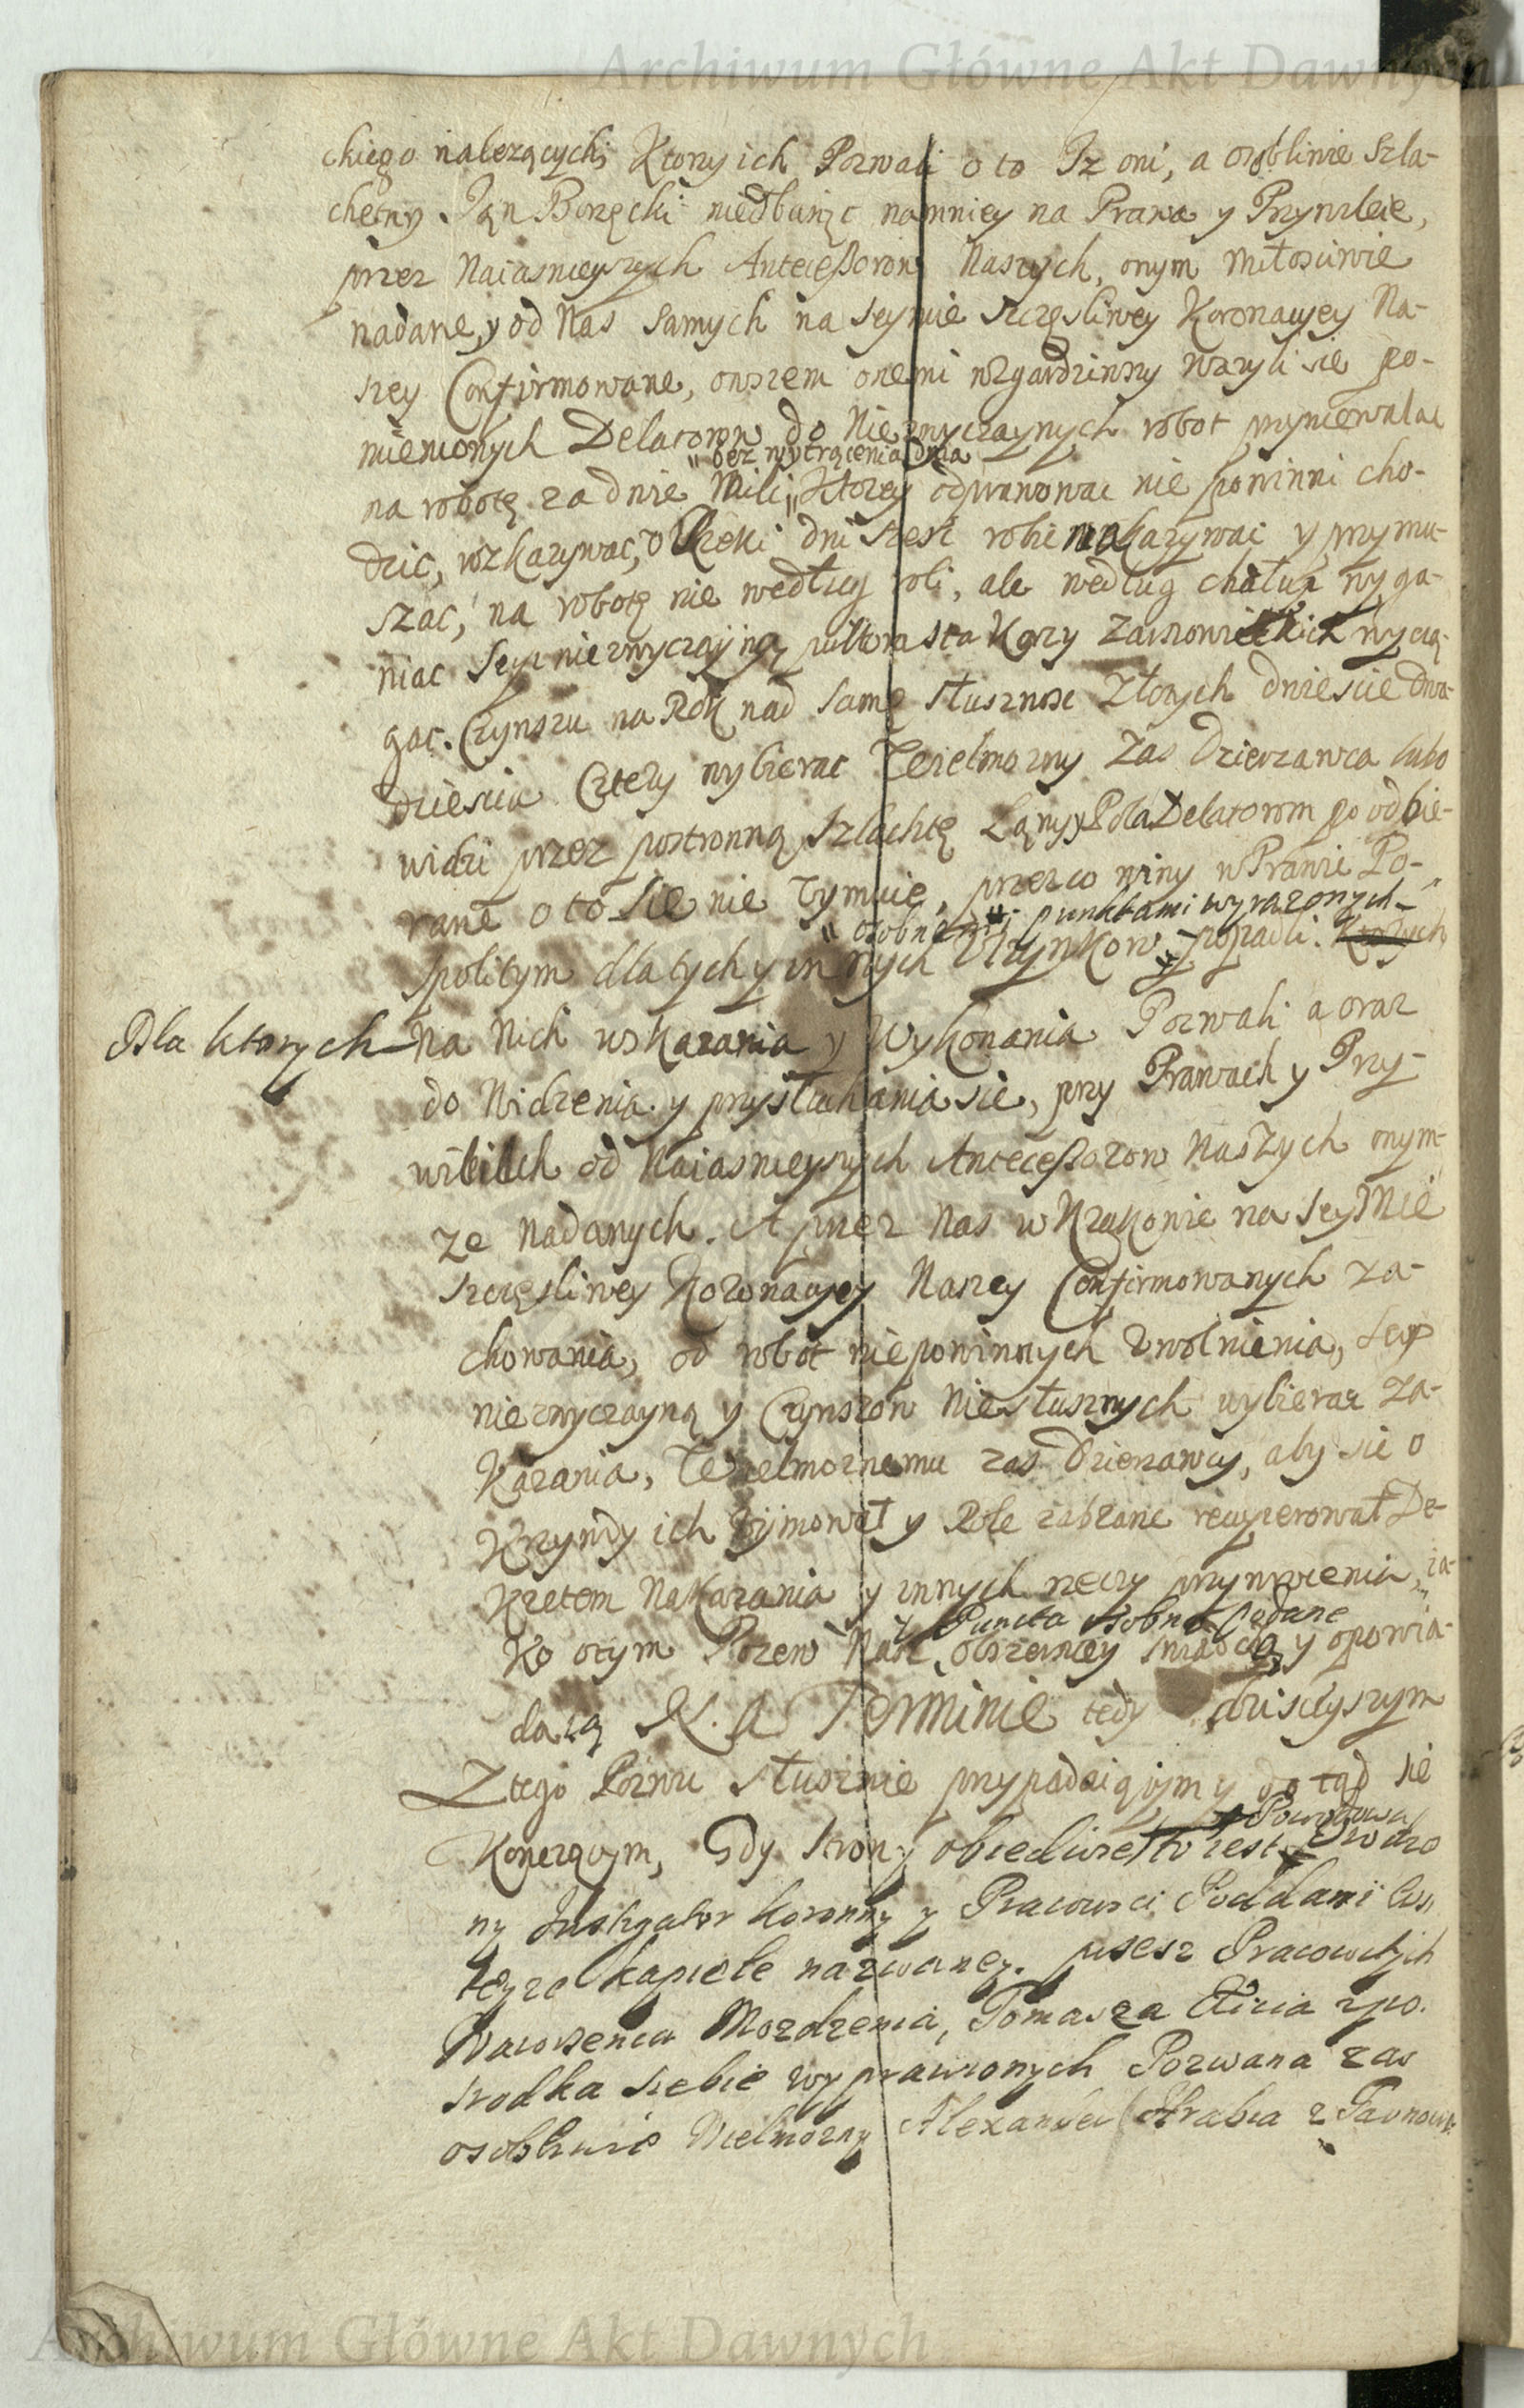 Archiwum Główne Akt Dawnych
ckiego nalezących, Ktory ich Pozwali o to Iz oni, a osobliwie Szla-
chetny Jan Borzęcki niedbaiąc namniey na Prawa y Przywileie,
przez Naiasnieyszych Antecessorow Naszych, onym miłosciwie
nadane, y od Nas samych na seymie szczęsliwey Koronacyey Na-
szey Confirmowane, owszem onemi wzgardziwszy wazyli się po-
mienionych Delatorow do Niezwyczaynych robot przyniewalac
" bez wytrącenia dnia
na robotę za dwie Mili " Ktorey odprawowac nie powinni cho-
dzic, wskazywac, dni szesc robic nakazywac y przymu-
szac, na robotę nie według roli, ale według chałup wyga-
niac Sep niezwyczayną połtorasta Korcy wycią-
gac. Czynszu na Rok nad samę słusznosc Złotych dwiescie dwa-
dziescia Cztery wybierac Wielmozny zas Dzierzawca lubo
widzi przez postronną szlachtę Łąny y Pola Delatorom poodbie-
rane o to się nie uymuie, przez co winy w Prawie Po-
" osobnemi punktami wyrazonych
spolitym dla tych y innych Uczynkow popadli. Ktorych
Dla ktorych Na Nich wskazania y Wykonania Pozwali a oraz
do Widzenia y przysłuchania się, przy Prawach y Przy-
wileiach od Naiasnieyszych Antecessorow Naszych onym-
ze nadanych. A przez Nas w Krakowie na seymie
szczęsliwey Koronacyey Naszey Confirmowanych za-
chowania, od robot niepowinnych uwolnienia, Sep
niezwyczayną y Czynszow niesłusznych wybierac za-
kazania, Wielmoznemu zas Dzierzawcy, aby się o
Krzywdy ich uymował y Role zabrane recuperował De-
kretem Nakazania y innych rzeczy przywrocenia, ia-
y Puncta osobno podane
ko o tym Pozew Nasz obszerniey swiadczą y opowia-
daią Na Terminie tedy dzisieyszym
Z tego Pozwu słusznie przypadaiącym y do tąd się
Powodowa
Konczącym, Gdy strony obiedwie to iest Urodzo
ny Instygator Koronny y Pracowici Poddani wsi
teyze Kąpiele nazwaney. przez Pracowitych
Wawrzenca Mozdzenia, Tomasza Cicia z po.
srodka siebie wyprawionych Pozwana zas
osobliwie Wielmozny Alexander Hrabia z Tarnowa
Archiwum Główne Akt Dawnych